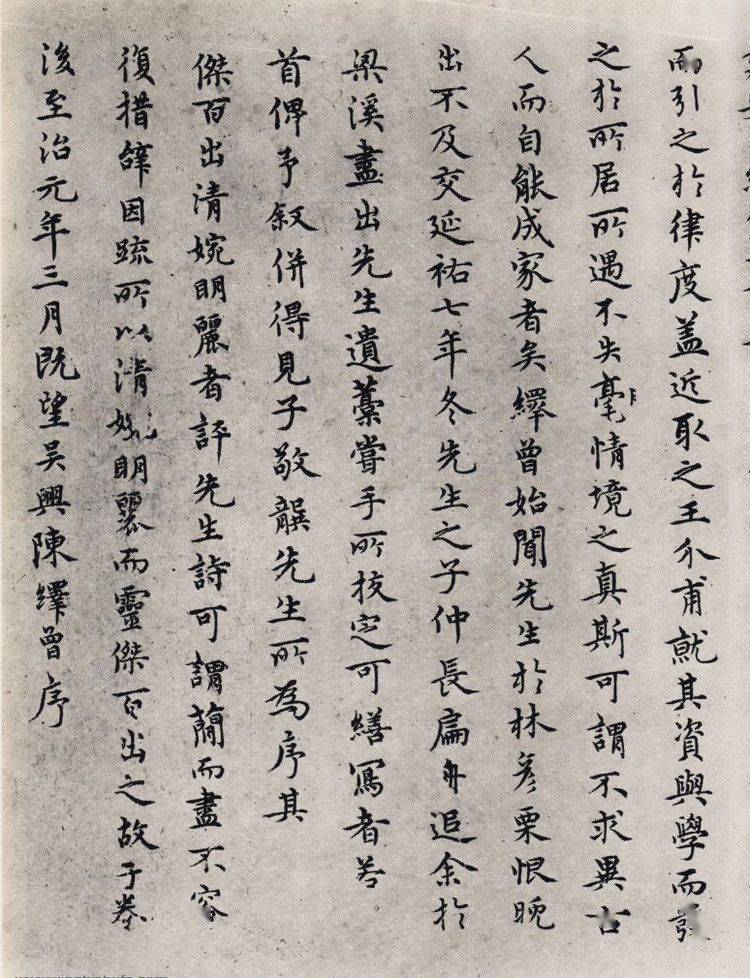 而引之於律度盖近取之王介甫就其資與學而
之於所居所遇不失毫情境之真斯可謂不求異古
人而自能成家者矣繹曾始聞先生於林彥栗恨晚
出不及交延祐七年冬先生之子仲長扁舟追余於
梁溪盡出先生遺藁嘗手所挍定可繕寫者若
首俾予叙併得見子敬龔先生所為序其
傑百出清婉明麗者評先生詩可謂蕳而盡不容
復措辞因疏所以清婉明麗而靈傑百出之故于卷
後至治元年三月既望吴興陳繹曾序